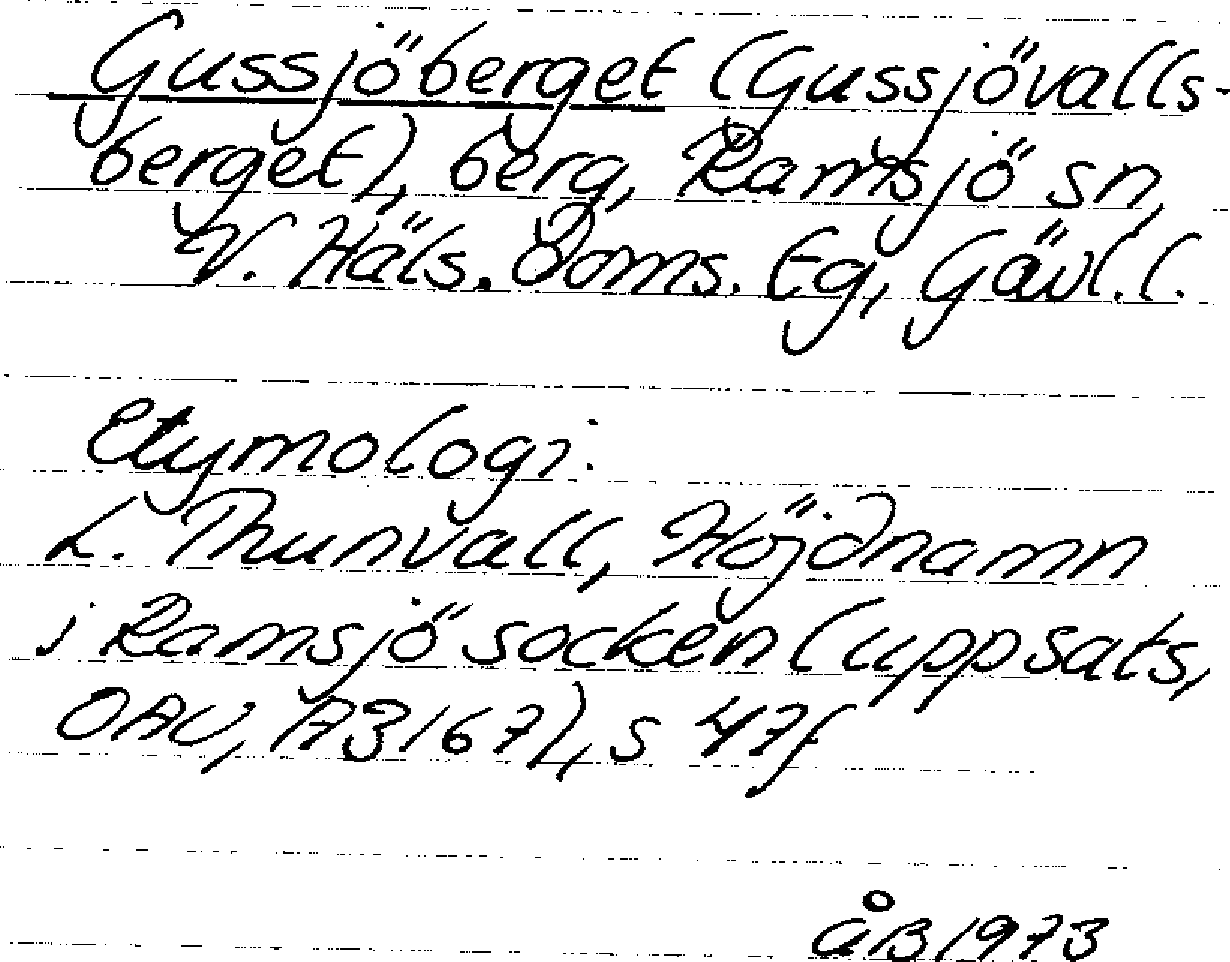 Gussjöberget (Gussjövalls-
berget), berg, Ramsjö sn,
V. Häls. Doms. tg, Gävl. l.
Etymologi:
L. Thunvall, Höjdnamn
i Ramsjö socken (uppsats,
OAU, A3167), s 47f
åB 1973